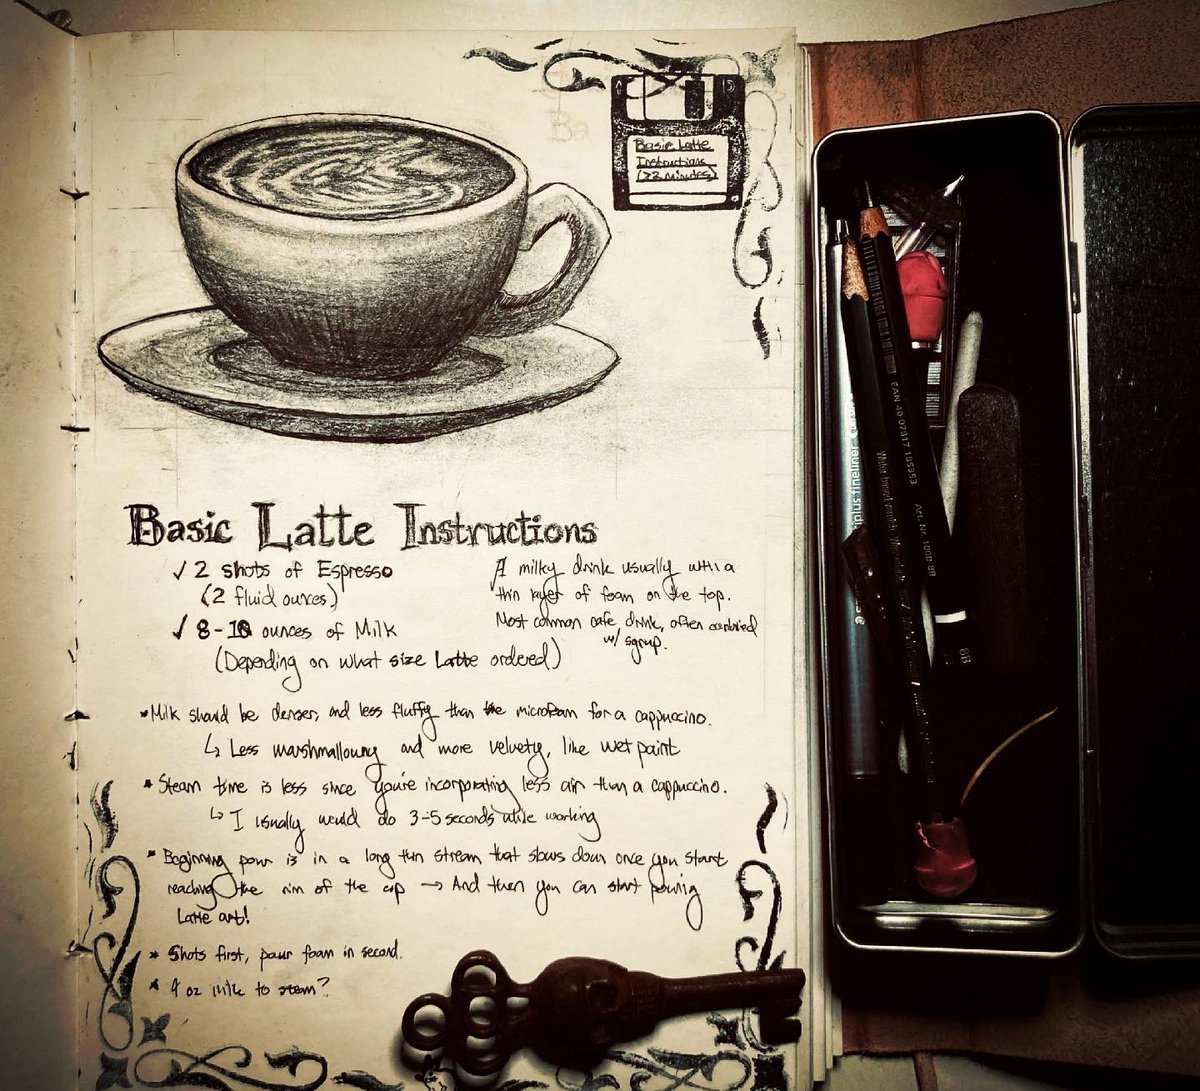 Basic Latte
Instructions
(>2 minutes)
Basic Latte Instructions
✓ 2 shots of Espresso
(2 fluid ounces)
✓ 8-10 ounces of Milk
(Depending on what size Latte ordered)
A milky drink usually with a
thin layer of foam on the top.
Most common cafe drink, often combined
w/ syrup.
* Milk should be denser, and less fluffy than the microfoam for a cappuccino.
↳ Less marshmallowy and more velvety, like wet paint
* Steam time is less since you're incorporating less air than a cappuccino.
↳ I usually would do 3-5 seconds while working
* Beginning pour is in a long thin stream that slows down once you start
reaching the rim of the cup → And then you can start pouring
Latte art!
* Shots first, pour foam in second.
* 9 oz milk to steam?
plus fineliner
EAN 40 07817 185353
Art. Nr. 100B 8B
8B